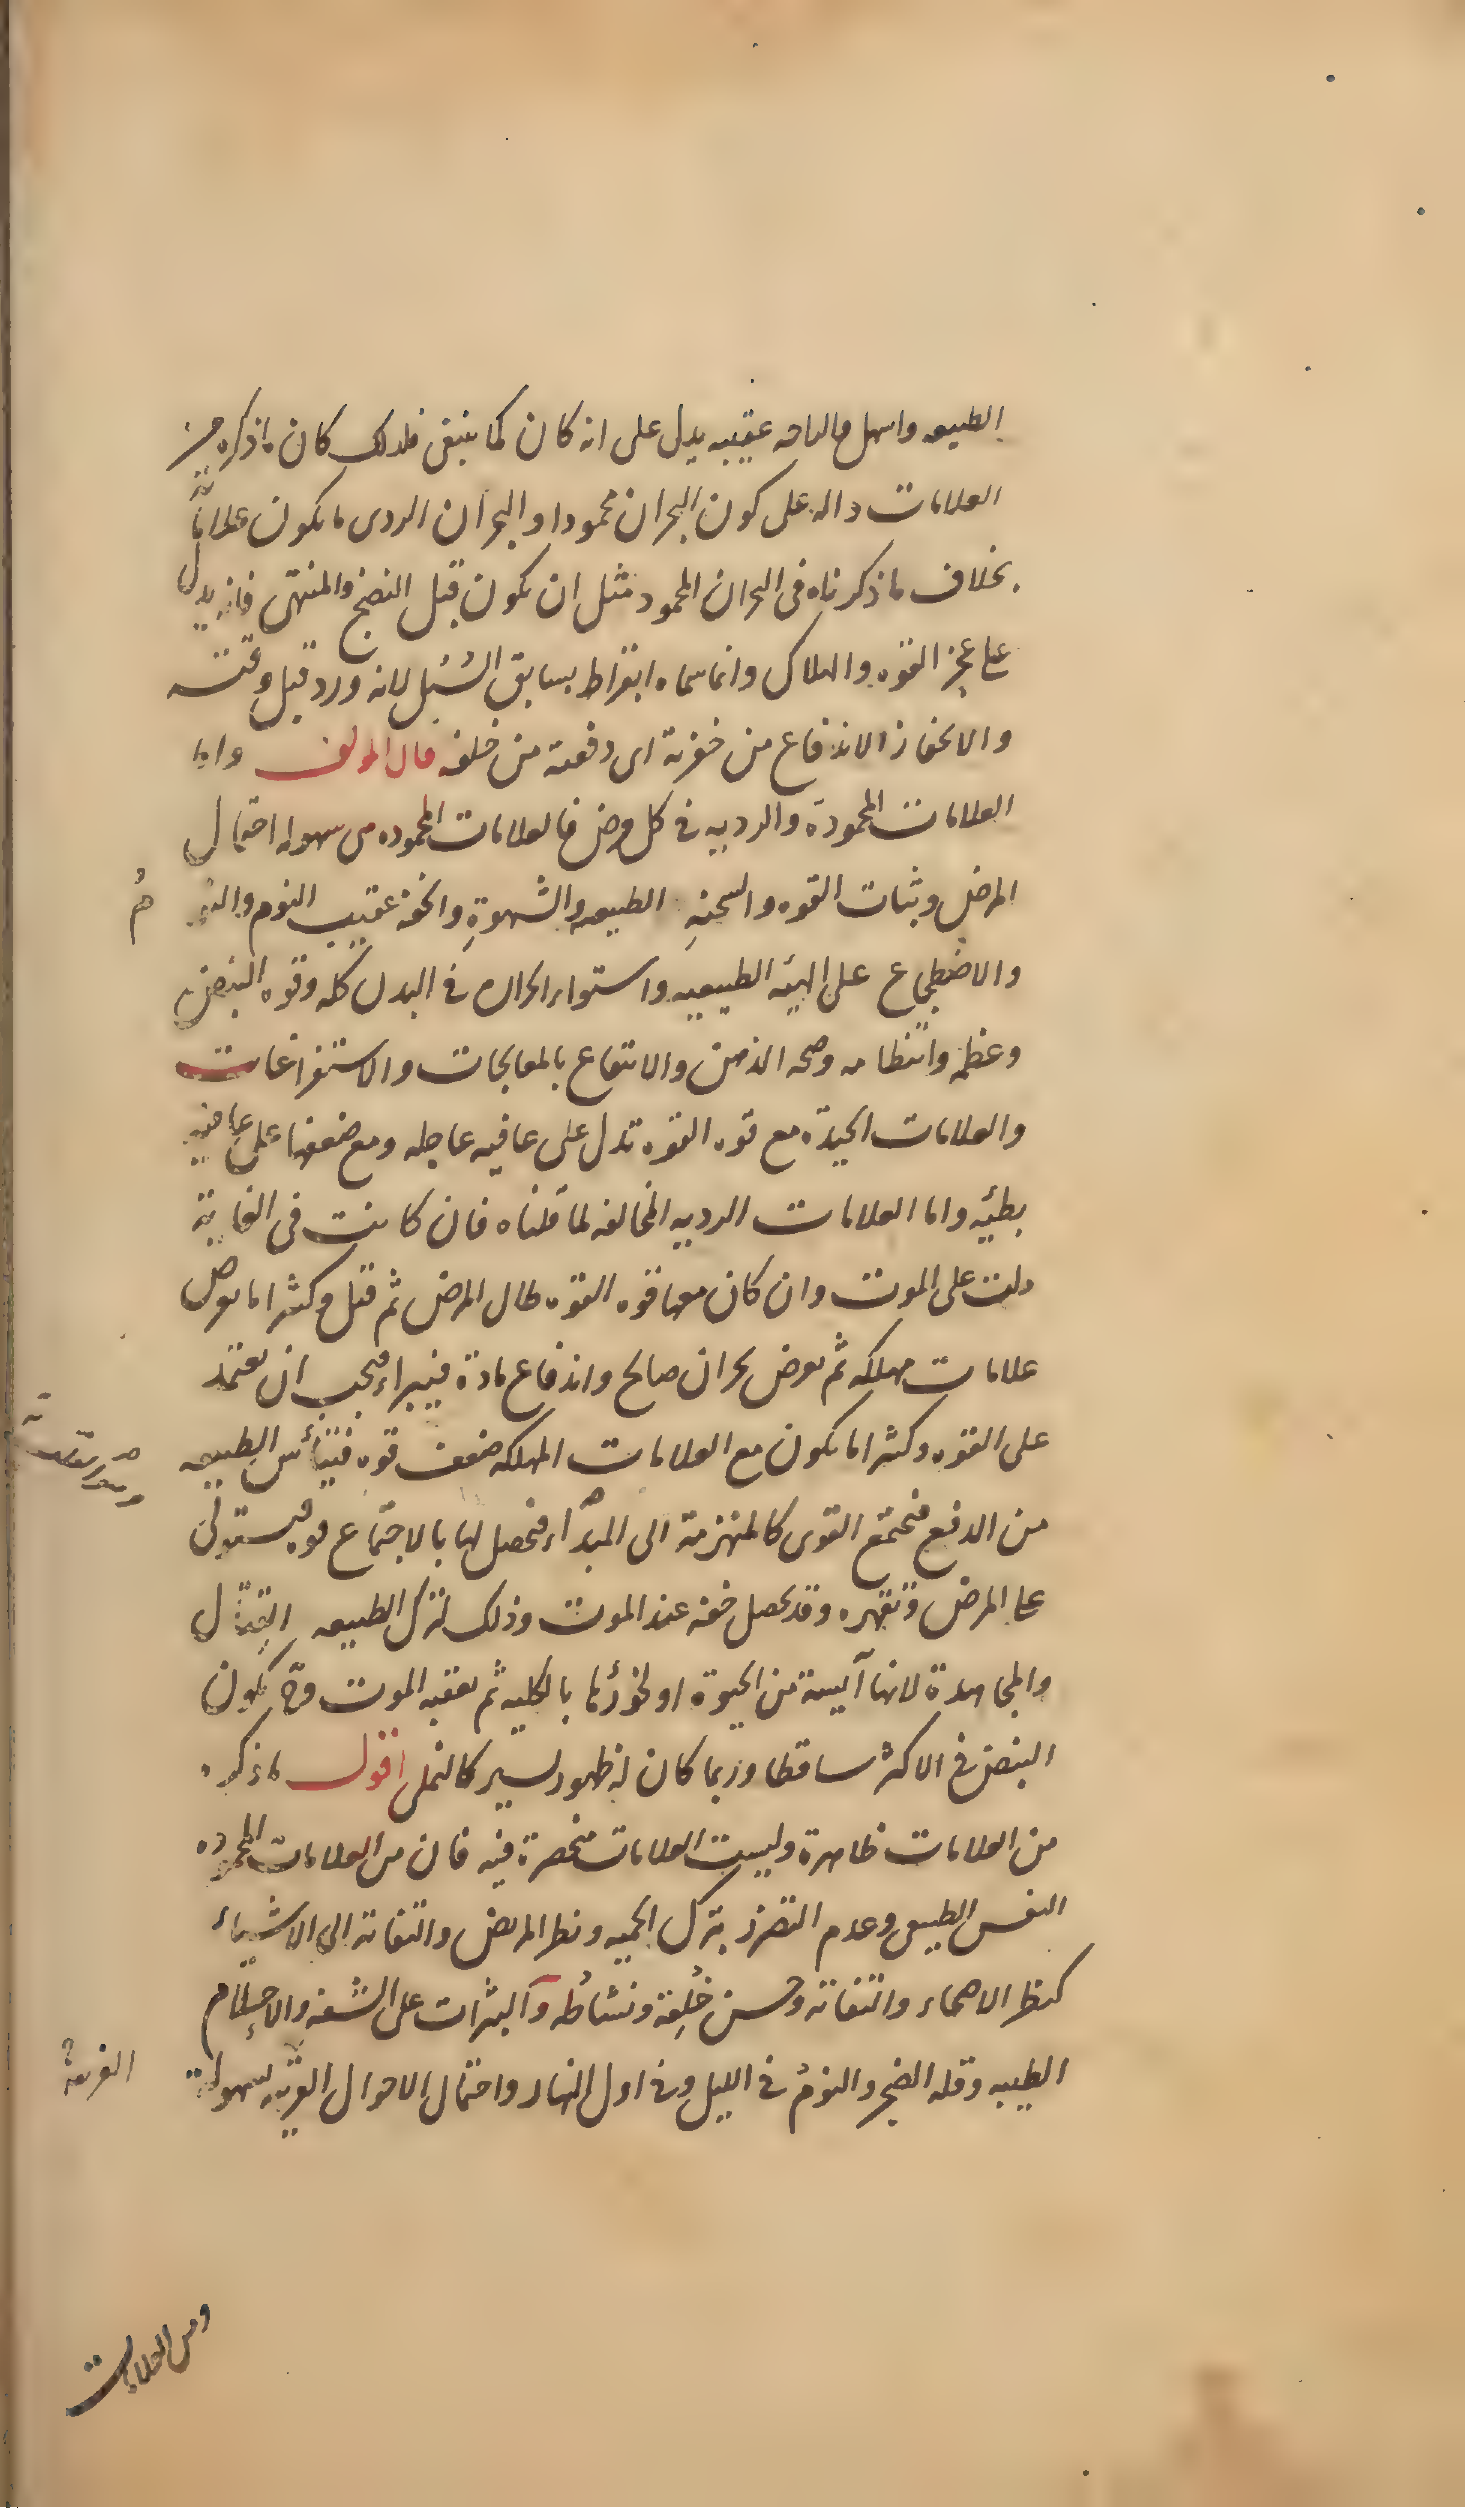 الطبيعه واسهل فالراحه عقيبه يدل على انه كان كما ينبغى فلذلك كان ماذكره من
العلامات داله على كون البحران محمودا والبحران الردى ما يكون علاماته
بخلاف ماذكرناه فى البحران المحمود مثل ان يكون قبل النضج والمنتهى فانه يدل
على عجز القوه والهلاك وانما سماه ابقراط بسابق السُبُل لانه ورد قبل وقته
والانحفاز الاندفاع من حفزته اى دفعته من خلفه قال المولف واما
العلامات المحمودة والرديه فى كل مرض فالعلامات المحموده هى سهوله احتمال
المرض وثبات القوه والسحنهِ الطبيعيه والشهوةِ والخفه عقيب النوم والنو
مُ
والاضطجاع على الهيئه الطبيعيه واستواء الحراره فى البدن كله وقوه النبض
وعظمه وانتظامه وصحه الذهن والانتفاع بالمعالجات والاستفراغات
والعلامات الجيدة مع قوه القوه تدل على عافيه عاجله ومع ضعفها على عافيه
بطيئه واما العلامات الرديه المخالفه لما قلناه فان كانت فى الغاية
دلت على الموت وان كان معها قوه القوه طال المرض ثم قتل وكثيرا ما يعرض
علامات مهلكه ثم يعرض بحران صالح واندفاع مادة فيبراء فيجب ان يعتمد
على القوه وكثيرا ما يكون مع العلامات المهلكه ضعف قوه فتيأس الطبيعه
من الدفع فتجتمع القوى كالمنهزمة الى المبدأ فتحصل لها بالاجتماع قوه فيستولى
على المرض وتقهره وقد يحصل خفه عند الموت وذلك لترك الطبيعه القتال
والمجاهدة لانها آيسة من الحيوة او لخورها بالكليه ثم يعقبه الموت وح يكون
النبض فى الاكثر ساقطا وربما كان له ظهور يسير كالنملى اقول ماذكره
من العلامات ظاهرة وليست العلامات منحصرة فيه فان من العلامات المحموده
النفس الطبيعى وعدم التضرر بترك الحميه ونظر المريض والتفاته الى الاشياء
كنظر الاصحاء والتفاته وحسن خُلِقه ونشاطُه والبثرات على الشفه والاحلام
الطيبه وقله الضجر والنومُ فى الليل وفى اول النهار واحتمال الاحوال الغريبه لسهولة
الغريبة
ومن العلامات